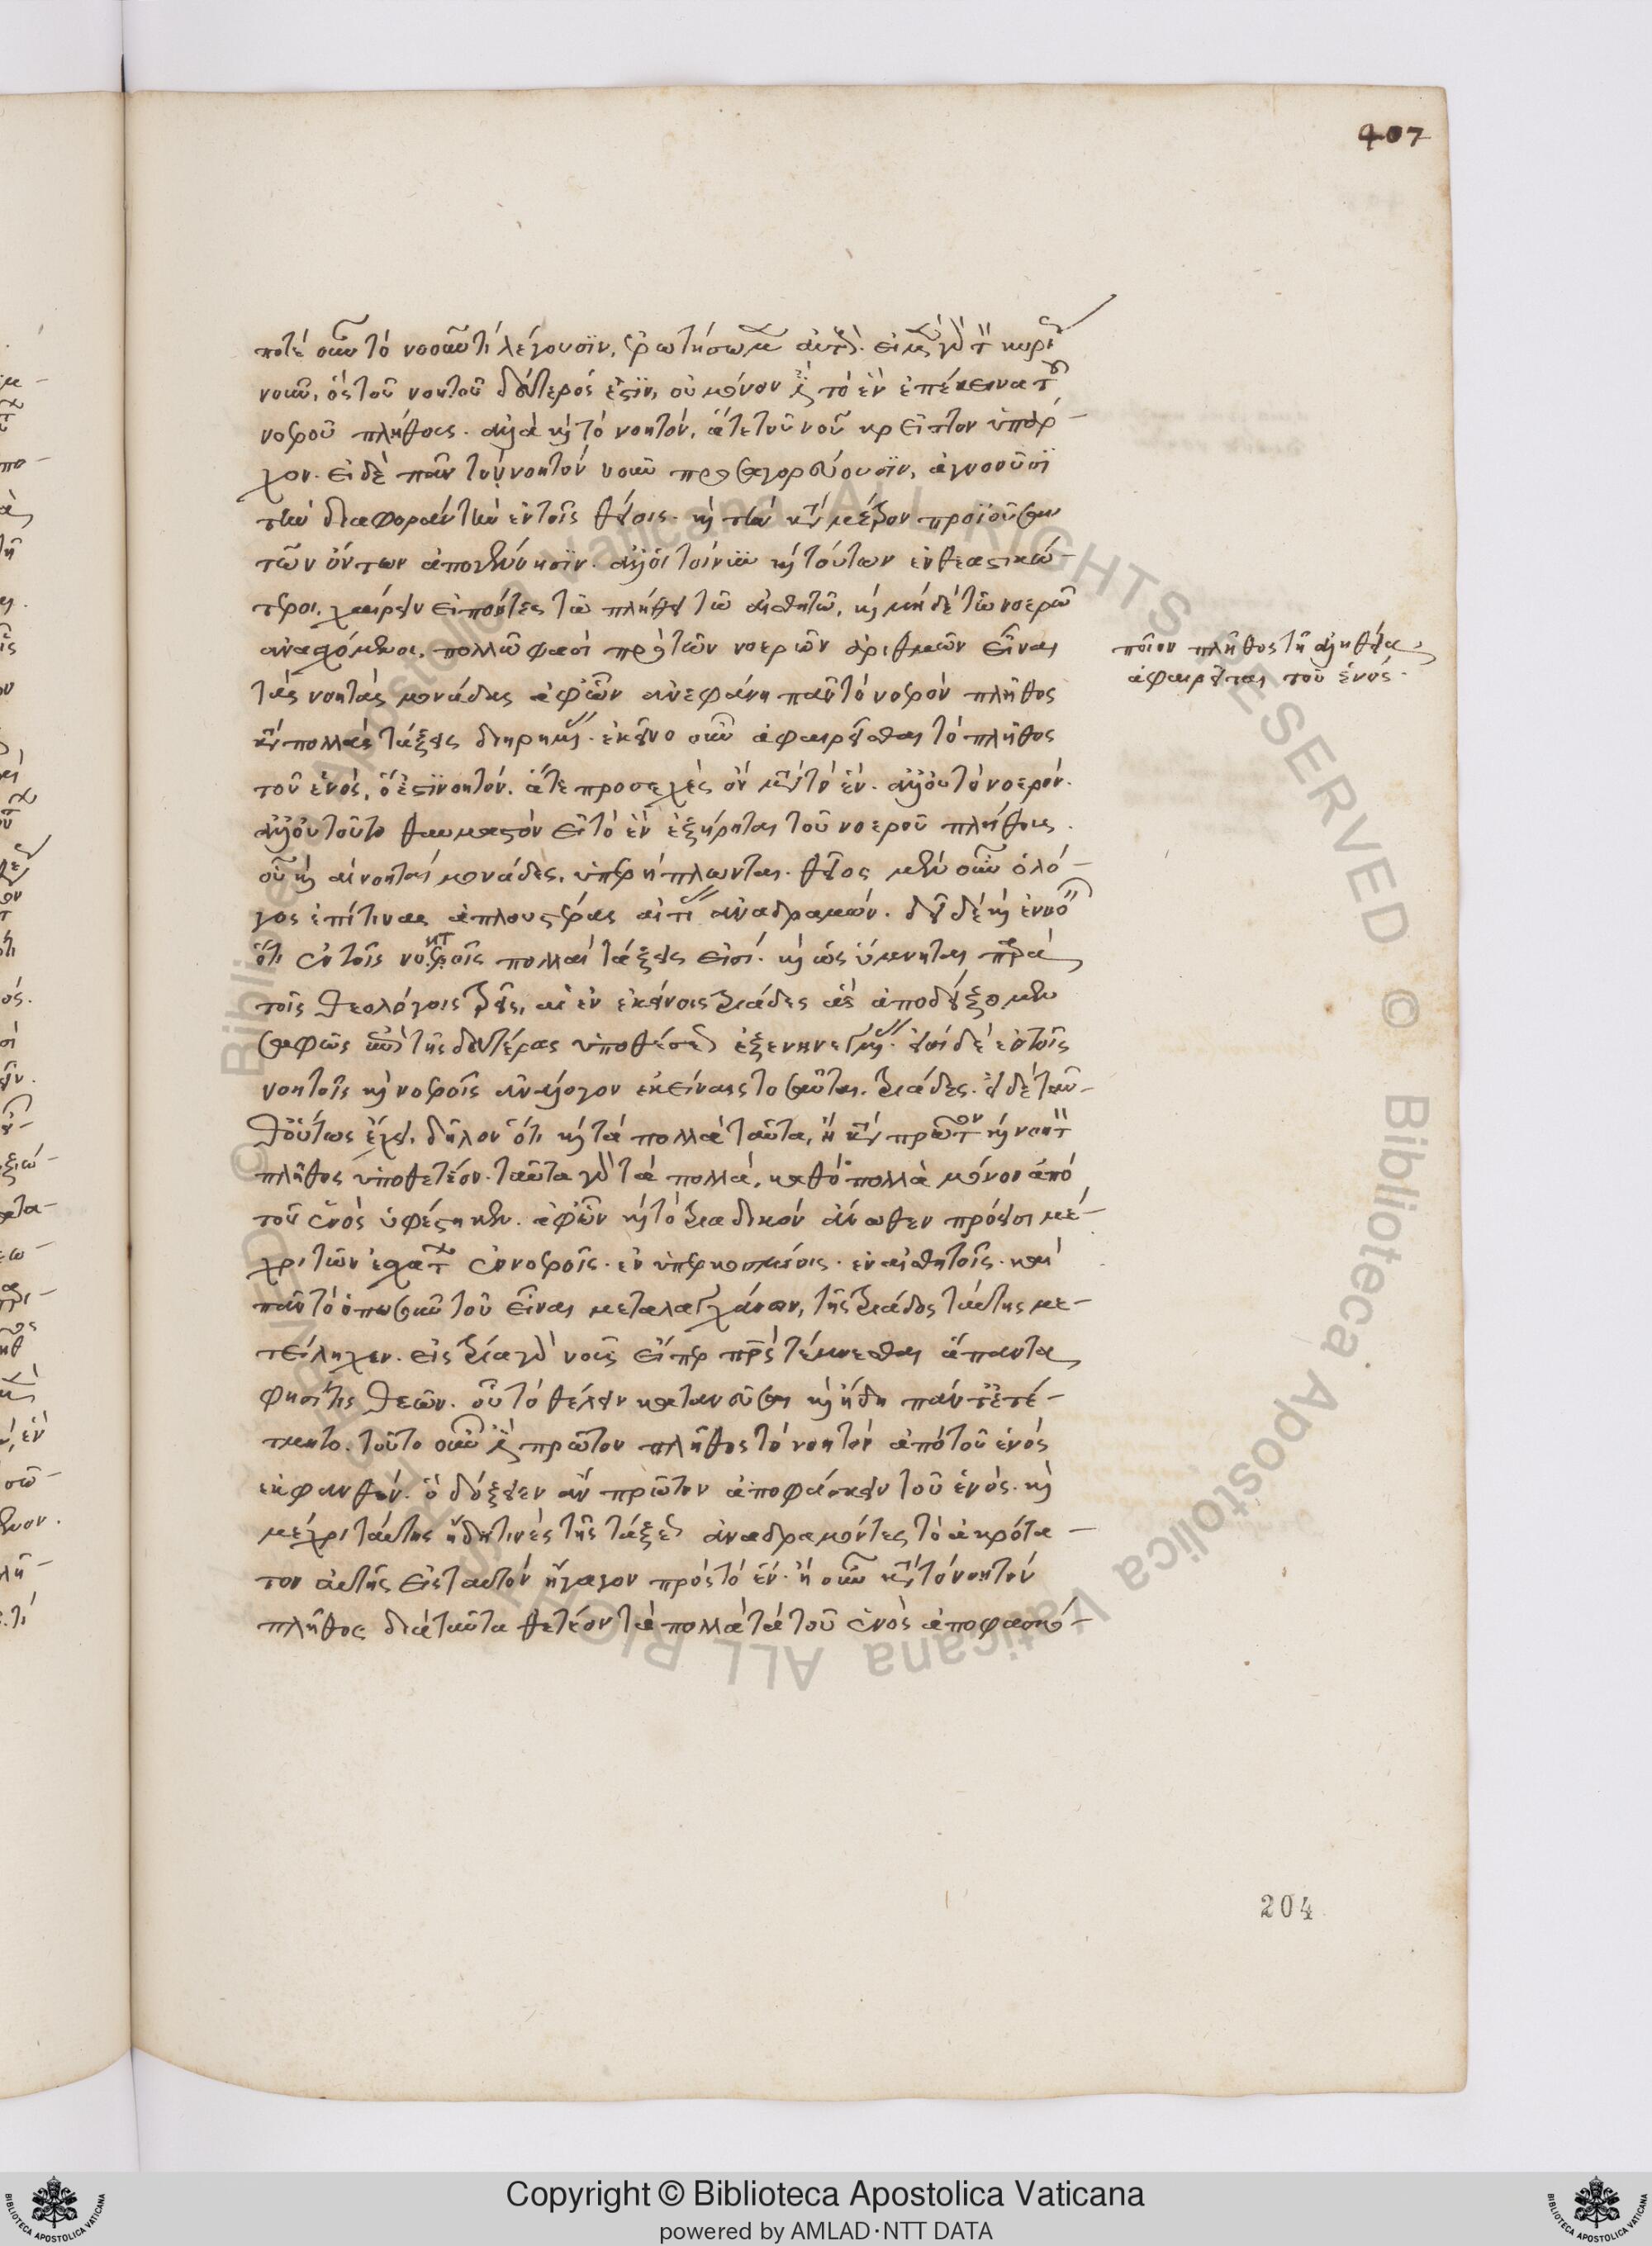 407
ποτε οὖν τὸ νοοῦν τι λέγουσιν, ἐρωτήσωμεν αὐτούς. εἰ μὲν γὰρ τὸν κυρίως
νοῦν, ὃς τοῦ νοητοῦ δεύτερός ἐστιν, οὐ μόνον ἐστὶ τὸ ἓν ἐπέκεινα τοῦ
νοεροῦ πλήθους. ἀλλὰ καὶ τὸ νοητόν, ἅτε τοῦ νοῦ κρεῖττον ὑπάρ-
χον. εἰ δὲ πᾶν τὸ νοητὸν νοῦν προσαγορεύουσιν, ἀγνοοῦσι
τὴν διαφορὰν τὴν ἐν τοῖς θείοις. καὶ τὴν κατὰ μέτρον προϊοῦσαν
τῶν ὄντων ἀπογέννησιν. ἄλλοι τοίνυν καὶ τούτων ἐνθεαστικώ-
τεροι, χαίρειν εἰπόντες τῷ πλήθει τῷ αἰσθητῷ, καὶ μηδὲ τῷ νοερῷ
ἀνασχόμενοι, πολλῷ φασὶ πρὸ τῶν νοερῶν ἀριθμῶν εἶναι
τὰς νοητὰς μονάδας ἀφ' ὧν ἀνεφάνη πᾶν τὸ νοερὸν πλῆθος
κατὰ πολλὰς τάξεις διῃρημένον. ἐκεῖνο οὖν ἀφαιρεῖσθαι τὸ πλῆθος
τοῦ ἑνός, ὅ ἐστι νοητόν. ἅτε προσεχὲς ὂν μετὰ τὸ ἕν. ἀλλ' οὐ τὸ νοερόν.
ἀλλ' οὐ τοῦτο θαυμαστὸν εἰ τὸ ἓν ἐξῄρηται τοῦ νοεροῦ πλήθους.
οὗ καὶ αἱ νοηταὶ μονάδες, ὑπερήπλωνται. θεῖος μὲν οὖν ὁ λό-
γος ἐπί τινας ἁπλουστέρας αἰτίας ἀναδραμών. δεῖ δὲ καὶ ἐννοεῖν
ὅτι ἐν τοῖς νοεροῖς πολλαὶ τάξεις εἰσί. καὶ ὡς ὕμνηνται παρὰ
τοῖς θεολόγοις τρεῖς, αἱ ἐν ἐκείνοις τριάδες ἃς ἀποδείξομεν
σαφῶς ἀπὸ τῆς δευτέρας ὑποθέσεως ἐξενηνεγμένας. εἰσὶ δὲ ἐν τοῖς
νοητοῖς καὶ νοεροῖς ἀνάλογον ἐκείναις τοσαῦται τριάδες. εἰ δὲ ταῦ-
θ' οὕτως ἔχει, δῆλον ὅτι καὶ τὰ πολλὰ ταῦτα, ἢ κατὰ πρῶτον καὶ νοητὸν
πλῆθος ὑποθετέον. ταῦτα γὰρ τὰ πολλά, καθὸ πολλὰ μόνον ἀπὸ
τοῦ ἑνὸς ὑφέστηκεν. ἀφ' ὧν καὶ τὸ τριαδικὸν ἄνωθεν πρόεισι μέ-
χρι τῶν ἐσχάτων ἐν νοεροῖς. ἐν ὑπερκοσμίοις. ἐν αἰσθητοῖς. καὶ
πᾶν τὸ ὁπωσοῦν τοῦ εἶναι μεταλαγχάνον, τῆς τριάδος ταύτης με-
τείληχεν. εἰς τρία γὰρ νοῦς εἶπε πατρὸς τέμνεσθαι ἅπαντα
φησί τις θεῶν. οὗ τὸ θέλειν κατανεῦσαι καὶ ἤδη πάντ' ἐτέ-
τμητο. τοῦτο οὖν ἐστὶ πρῶτον πλῆθος τὸ νοητὸν ἀπὸ τοῦ ἑνὸς
ἐκφανθέν. ὃ δόξειεν ἂν πρῶτον ἀποφάσκειν τοῦ ἑνός. καὶ
μέχρι ταύτης ἤδη τινὲς τῆς τάξεως ἀναδραμόντες τὸ ἀκρότα-
τον αὐτῆς εἰς ταὐτὸν ἤγαγον πρὸς τὸ ἕν. ἢ οὖν κατὰ τὸ νοητὸν
πλῆθος διὰ ταῦτα θετέον τὰ πολλὰ τὰ τοῦ ἑνὸς ἀποφασκό-
ποῖον πλῆθος τῇ ἀληθείᾳ
ἀφαιρεῖται τοῦ ἑνός.
204
Copyright © Biblioteca Apostolica Vaticana
powered by AMLAD·NTT DATA